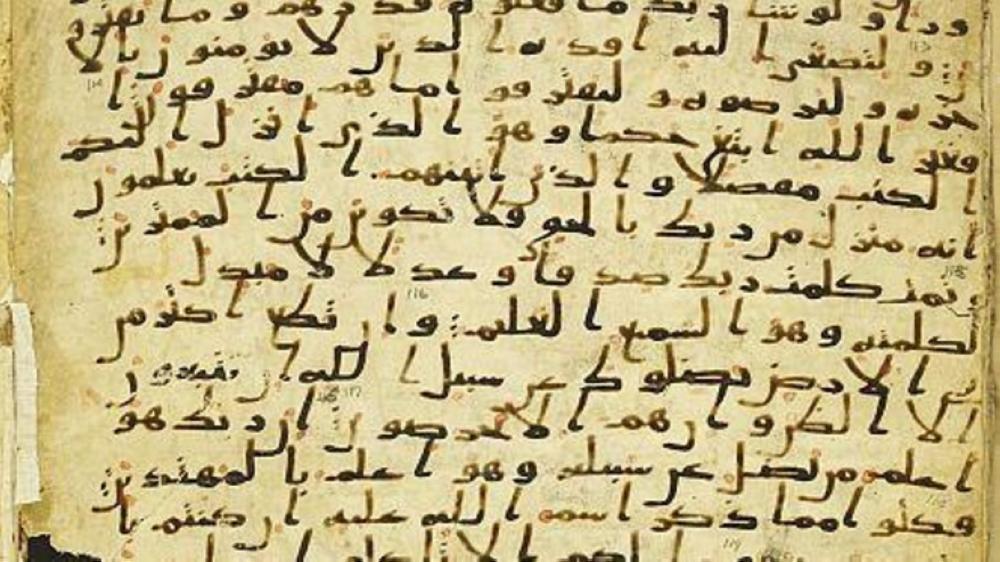 ورا ولو شا ربك ما فعلوه فذرهم وما يفترو
ن ولتصغى اليه افده الذين لا يومنون بالا
خره وليرضوه وليقترفوا ما هم مقترفون ا
فغير الله ابتغى حكما وهو الذي انزل اليكم
الكتب مفصلا والذين اتينهم الكتب يعلمون
انه منزل من ربك بالحق فلا تكونن من الممترين
وتمت كلمت ربك صدقا وعدلا لا مبدل
لكلمته وهو السميع العليم وان تطع اكثر من
في الارض يضلوك عن سبيل الله ان يتبعون
الا الظن وان هم الا يخرصون ان ربك هو
اعلم من يضل عن سبيله وهو اعلم بالمهتدين
فكلوا مما ذكر اسم الله عليه ان كنتم با